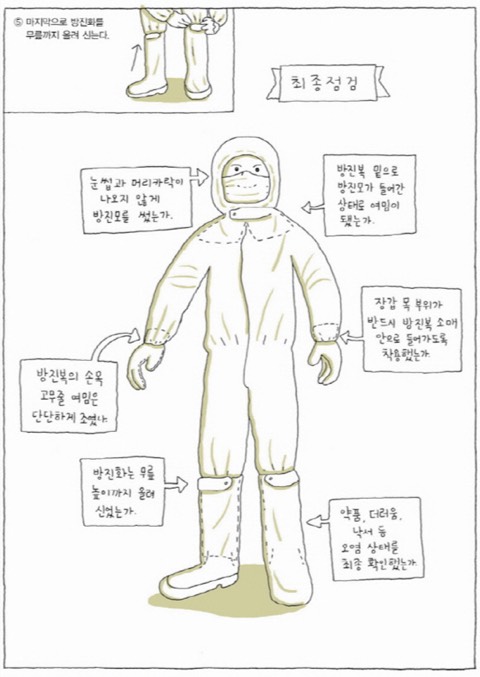 ⑤ 마지막으로 방진화를
무릎까지 올려 신는다.
최종점검
눈썹과 머리카락이
나오지 않게
방진모를 썼는가.
방진복 밑으로
방진모가 들어간
상태로 여밈이
됐는가.
장갑 목 부위가
반드시 방진복 소매
안으로 들어가도록
착용했는가
방진복의 손목
고무줄 여밈은
단단하게 조였나.
방진화는 무릎
높이까지 올려
신었는가.
약품, 더러움,
낙서 등
오염 상태를
최종 확인했는가.